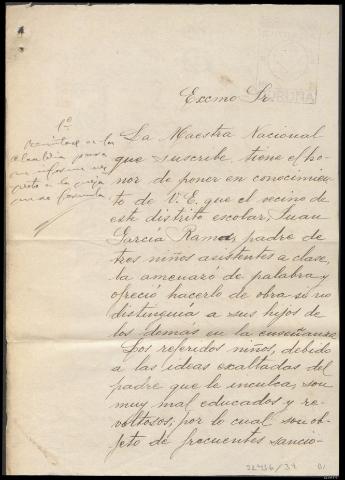 Excmo Sr.
CORUÑA
1º
Remítase a la
Alcaldía para
que informe res
pecto a la queja
que se formula
La Maestra Nacional
que suscribe tiene el ho-
nor de poner en conocimien
to de V.E. que el vecino de
este distrito escolar, Juan
García Ramos, padre de
tres niños asistentes a clase,
la amenazó de palabra y
ofreció hacerlo de obra si no
distinguía a sus hijos de
los demás en la enseñanza.
Los referidos niños, debido
a las ideas exaltadas del
padre que le inculca, son
muy mal educados y re-
voltosos, por lo cual son ob-
jeto de frecuentes sancio-